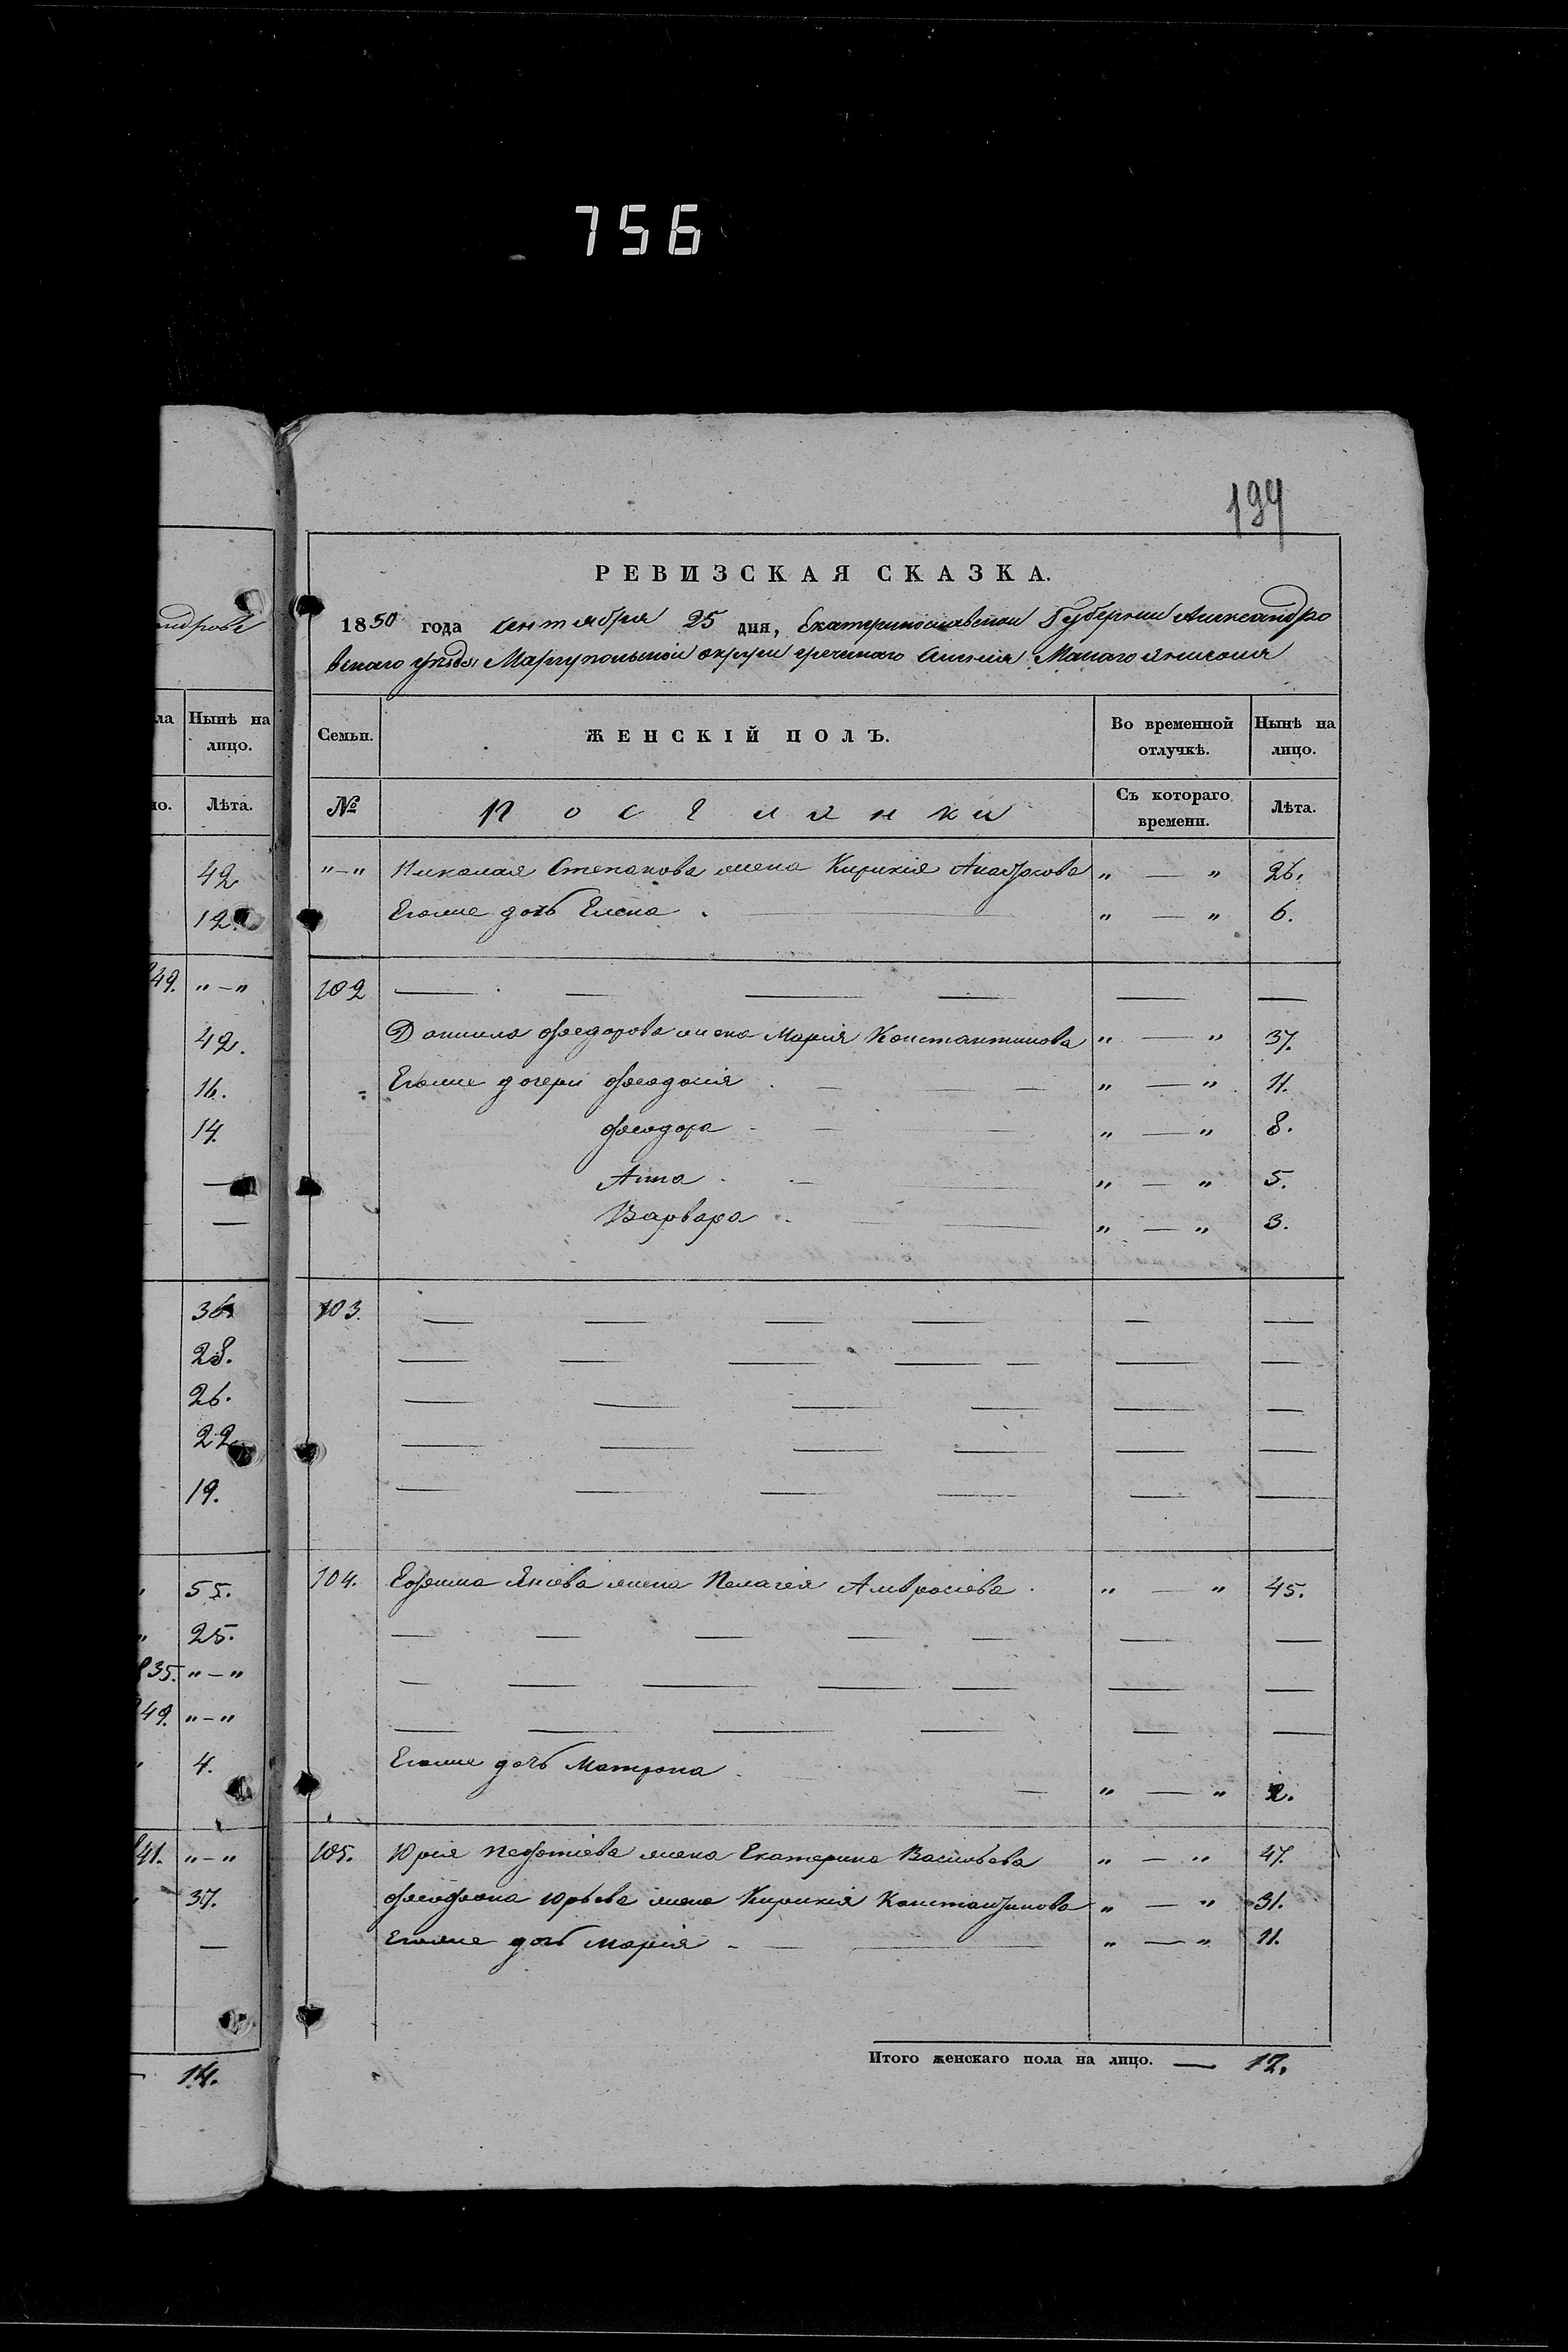 756
194
РЕВИЗСКАЯ СКАЗКА.
1850 года Сентября 25 дня, Екатеринославской Губернии Александро
вскаго уѣзда Маріупольской округи греческаго селенія Малаго Янисоля
Семьи. ЖЕНСКІЙ ПОЛЪ. Во временной отлучкѣ. Нынѣ на лицо.
№ Поселянки Съ котораго времени. Лѣта.
"–" Николая Степанова жена Кирикія " — " 26.
Егоже дочь Елена . — " — " 6.
102 — — — — — —
Даниила Федорова жена Марія Константинова " — " 37.
Егоже дочери Феодосія . — — " — " 11.
Феодора - — — " — " 8.
Анна . — — " — " 5.
Варвара . — " — " 3.
103. — — — — — —
— — — — — — —
— — — — — —
— — — — — —
— — — — — —
104. Ефима Яніева жена Пелагея Амвросіева . " — " 45.
— — — — — — —
— — — — — — —
— — — — — —
Егоже дочь Матрона . — " — " 2.
105. Юрія жена Екатерина Васильева " — " 47.
Феофана Юрьева жена Кирикія Константинова " — " 31.
Егоже дочь Марія - — — " — " 11.
Итого женскаго пола на лицо. — 12.
андровс
ла Нынѣ на лицо.
но. Лѣта.
42
12.
49. "–"
42.
16.
14.
—
—
36.
28.
26.
22
19.
55.
" 25.
835. "–"
49. "–"
4.
41. "–"
37.
—
14.